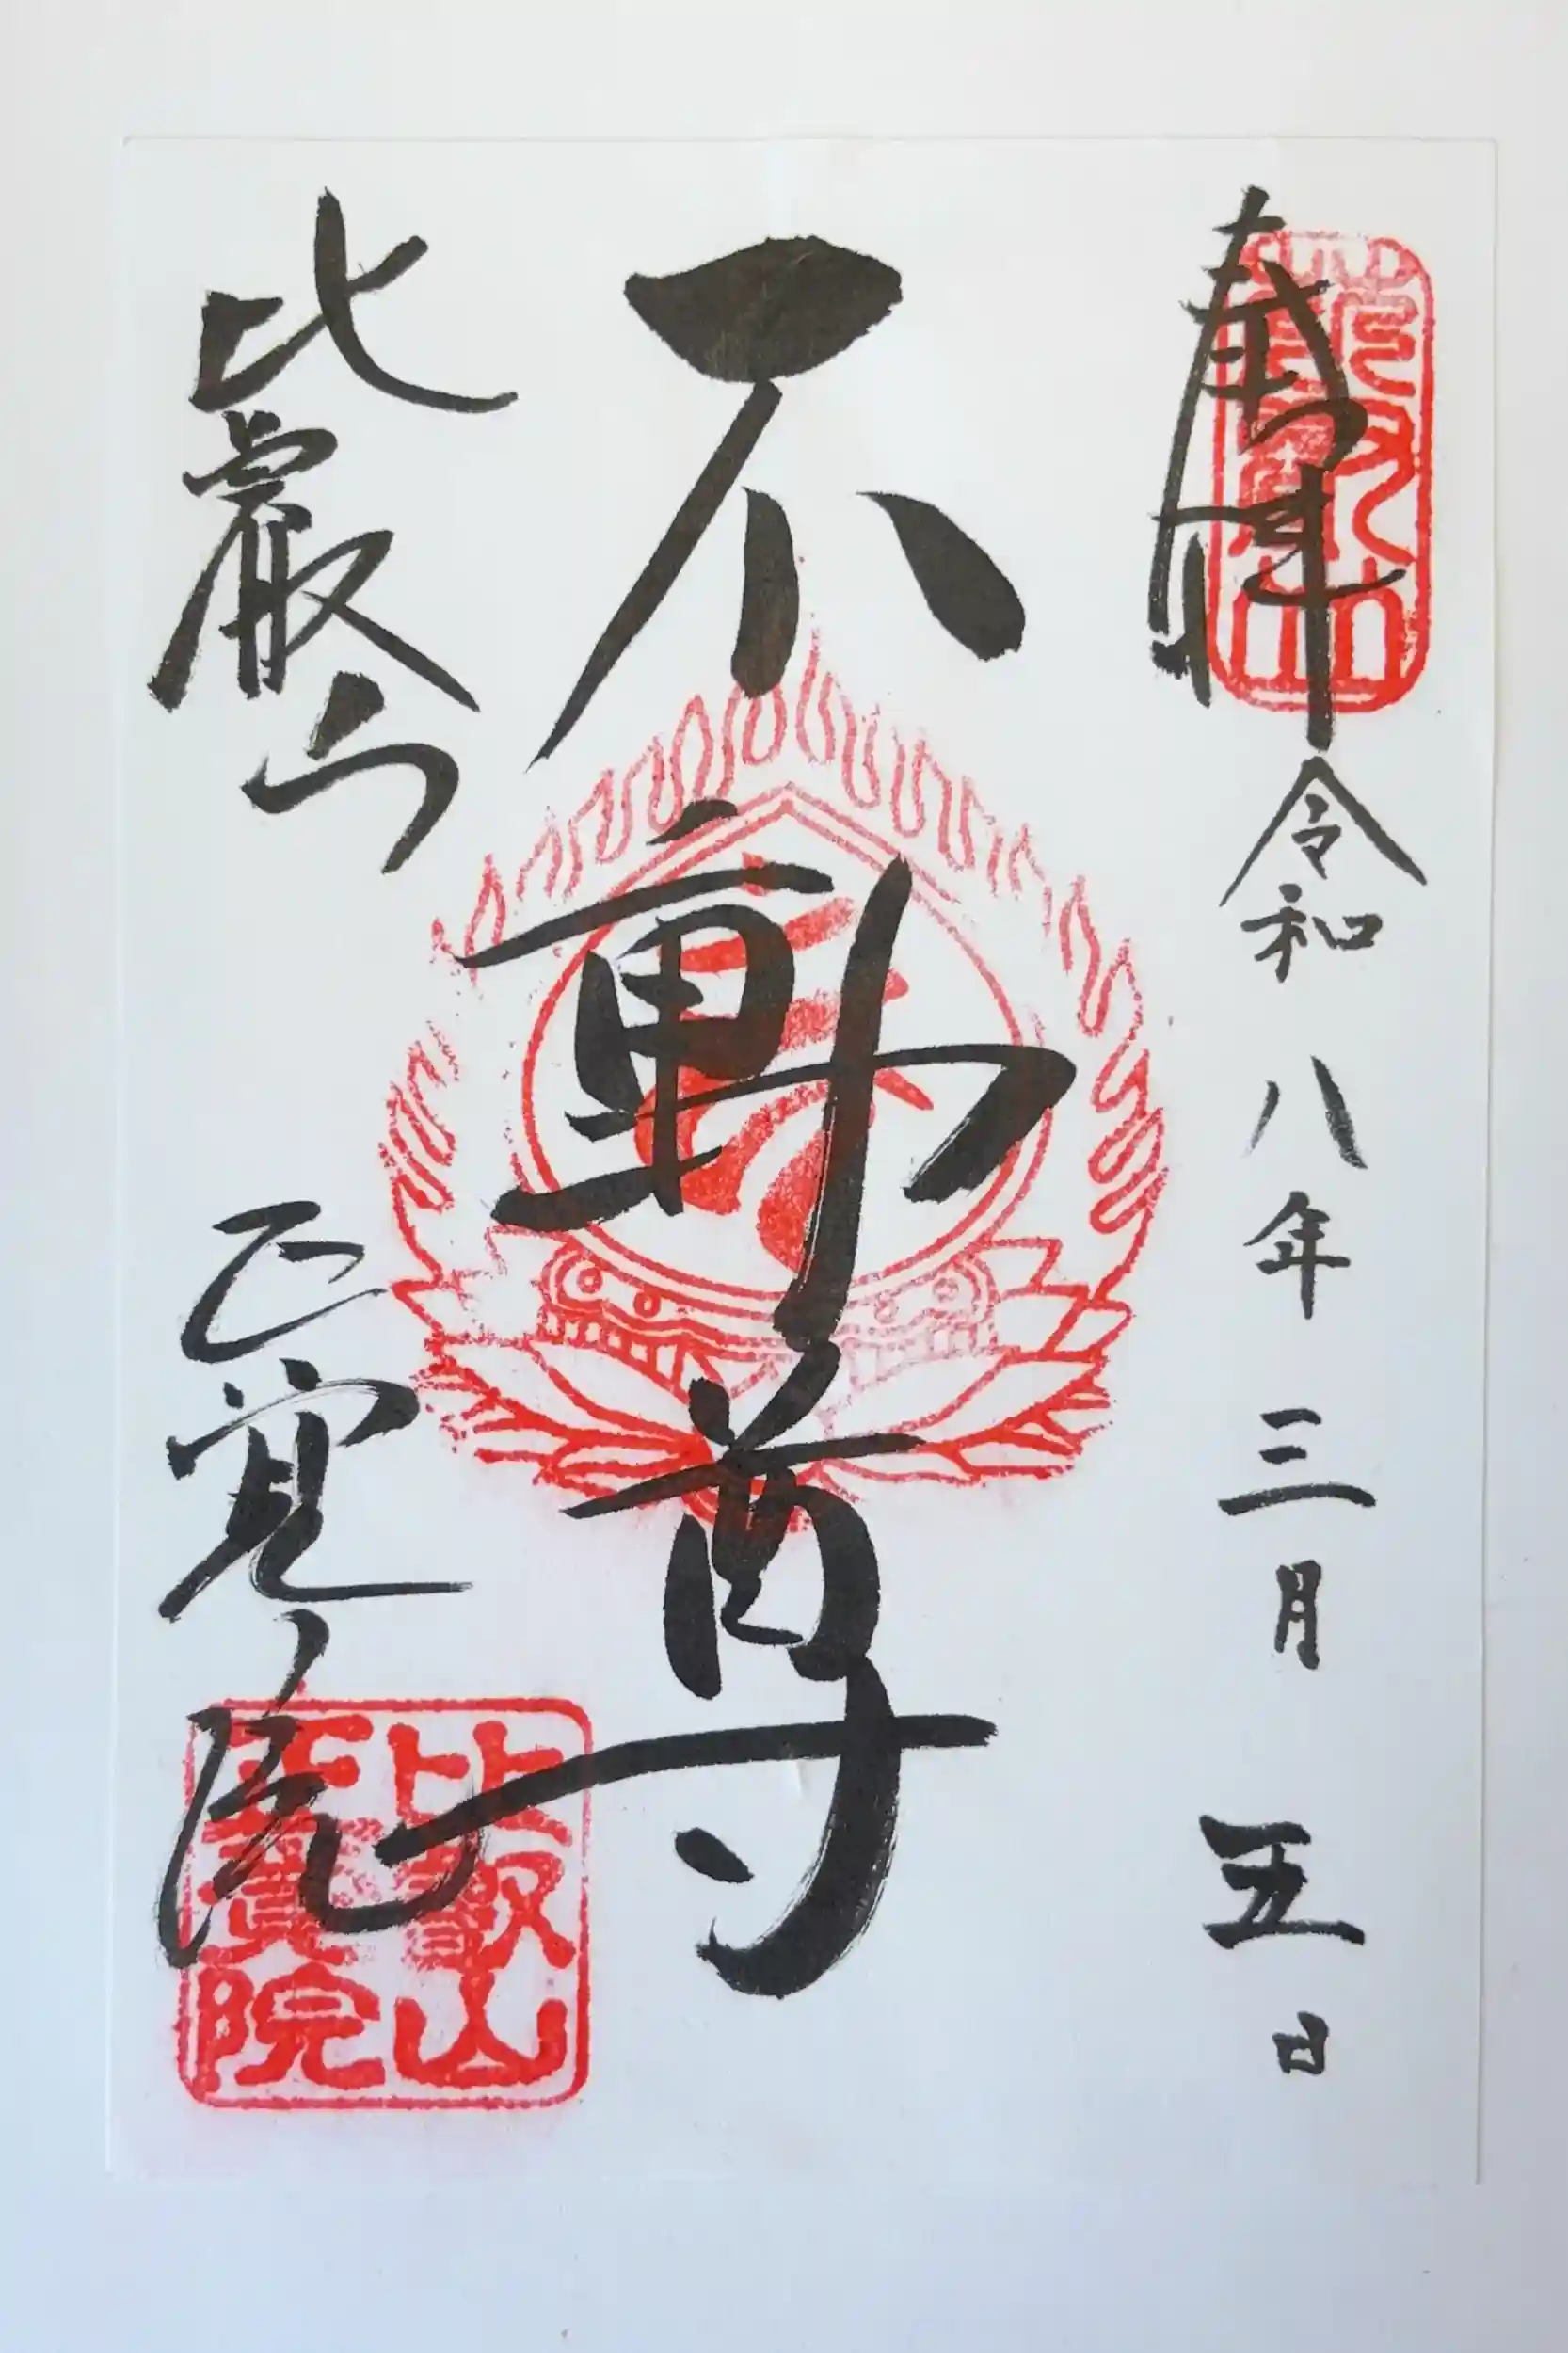 奉拝
令和八年三月五日
不動尊
比叡山
正覚院
比叡山
院